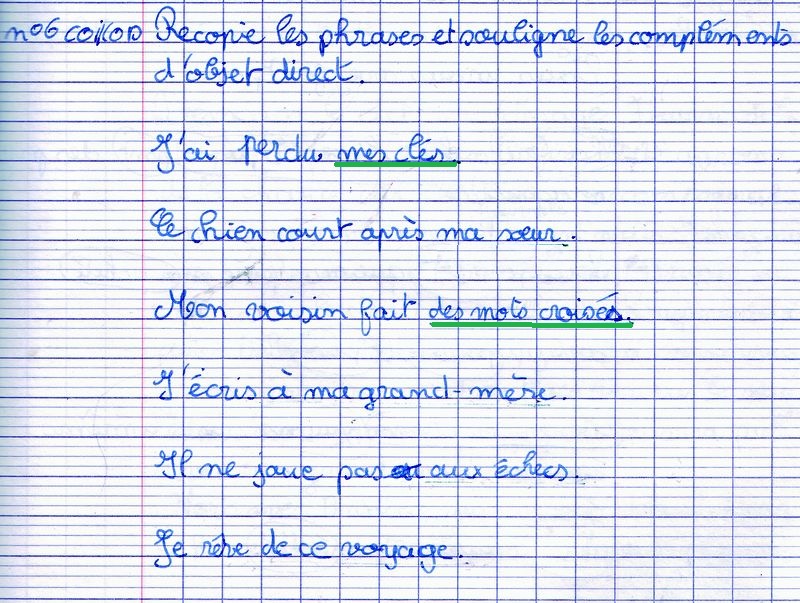 n°6 COI/COD Recopie les phrases et souligne les compléments
d'objet direct.
J'ai perdu mes clés.
Le chien court après ma sœur.
Mon voisin fait des mots croisés.
J'écris à ma grand-mère.
Il ne joue pas aux échecs.
Je rêve de ce voyage.